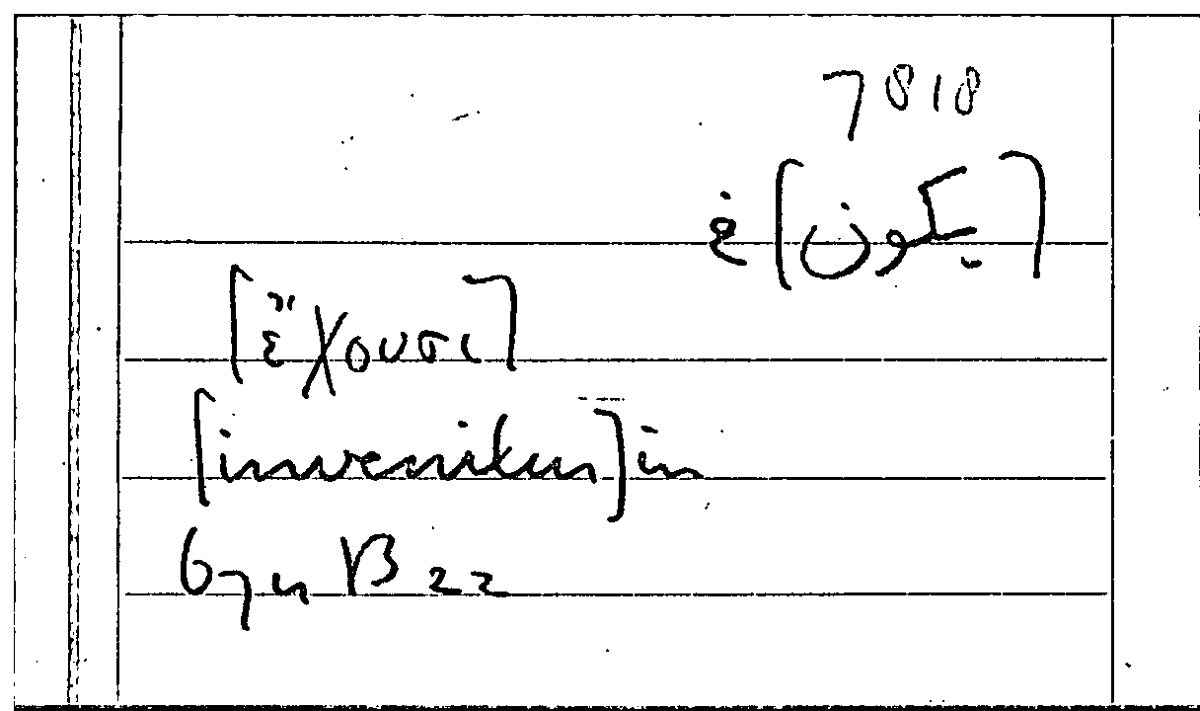 7818
[يكون] غ
[ἔχουσι]
[invenitur] in
67u B 22